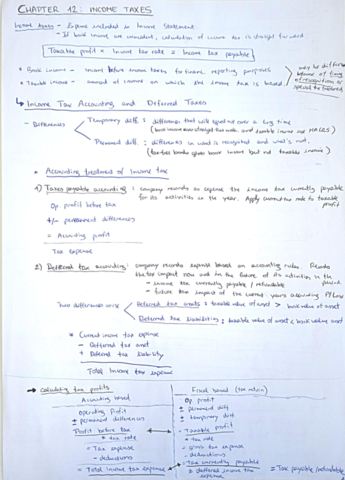 CHAPTER 12: INCOME TAXES
Income taxes - Expense included in Income Statement
- If book income are uncertain, calculation of income tax is straight forward
Taxable profit × Income tax rate = Income tax payable
* Book income - income before income taxes for financ. reporting purposes
may be different
because of timing
of recognition or
special tax treatment
* Taxable income - amount of income on which the income tax is based
↳ Income Tax Accounting and Deferred Taxes
- Differences
Temporary diff.: differences that will equal out over a long time
(book income uses straight-line meth. and taxable income use MACRS)
Permanent diff.: differences in what is recognized and what's not.
(tax-free bonds give book income but not taxable income)
* Accounting treatment of Income tax
1) Taxes payable accounting: company records as expense the income tax currently payable
for its activities in the year. Apply current tax rate to taxable
profit
Op. profit before tax
+/- permanent differences
= Accounting profit
Tax expense
2) Deferred tax accounting: company records expense based on accounting rules. Records
the tax impact now and in the future of its activities in the
period
- income tax currently payable / refundable
- future tax impact of the current years accounting
Two differences arise
Deferred tax assets: taxable value of asset > book value of asset
Deferred tax liabilities: taxable value of asset < book value of asset
* Current income tax expense
- Deferred tax asset
+ Deferred tax liability
Total income tax expense
→ Calculating tax profits
Accounting based
Operating Profit
± permanent differences
Profit before tax
× tax rate
= Tax expense
- deductions
= Total income tax expense
Fiscal based (tax return)
Op. profit
± permanent diff
± temporary diff
= Taxable profit
× tax rate
= Gross tax expense
- deductions
= Tax currently payable
± deferred income tax
expense
= Tax payable/refundable